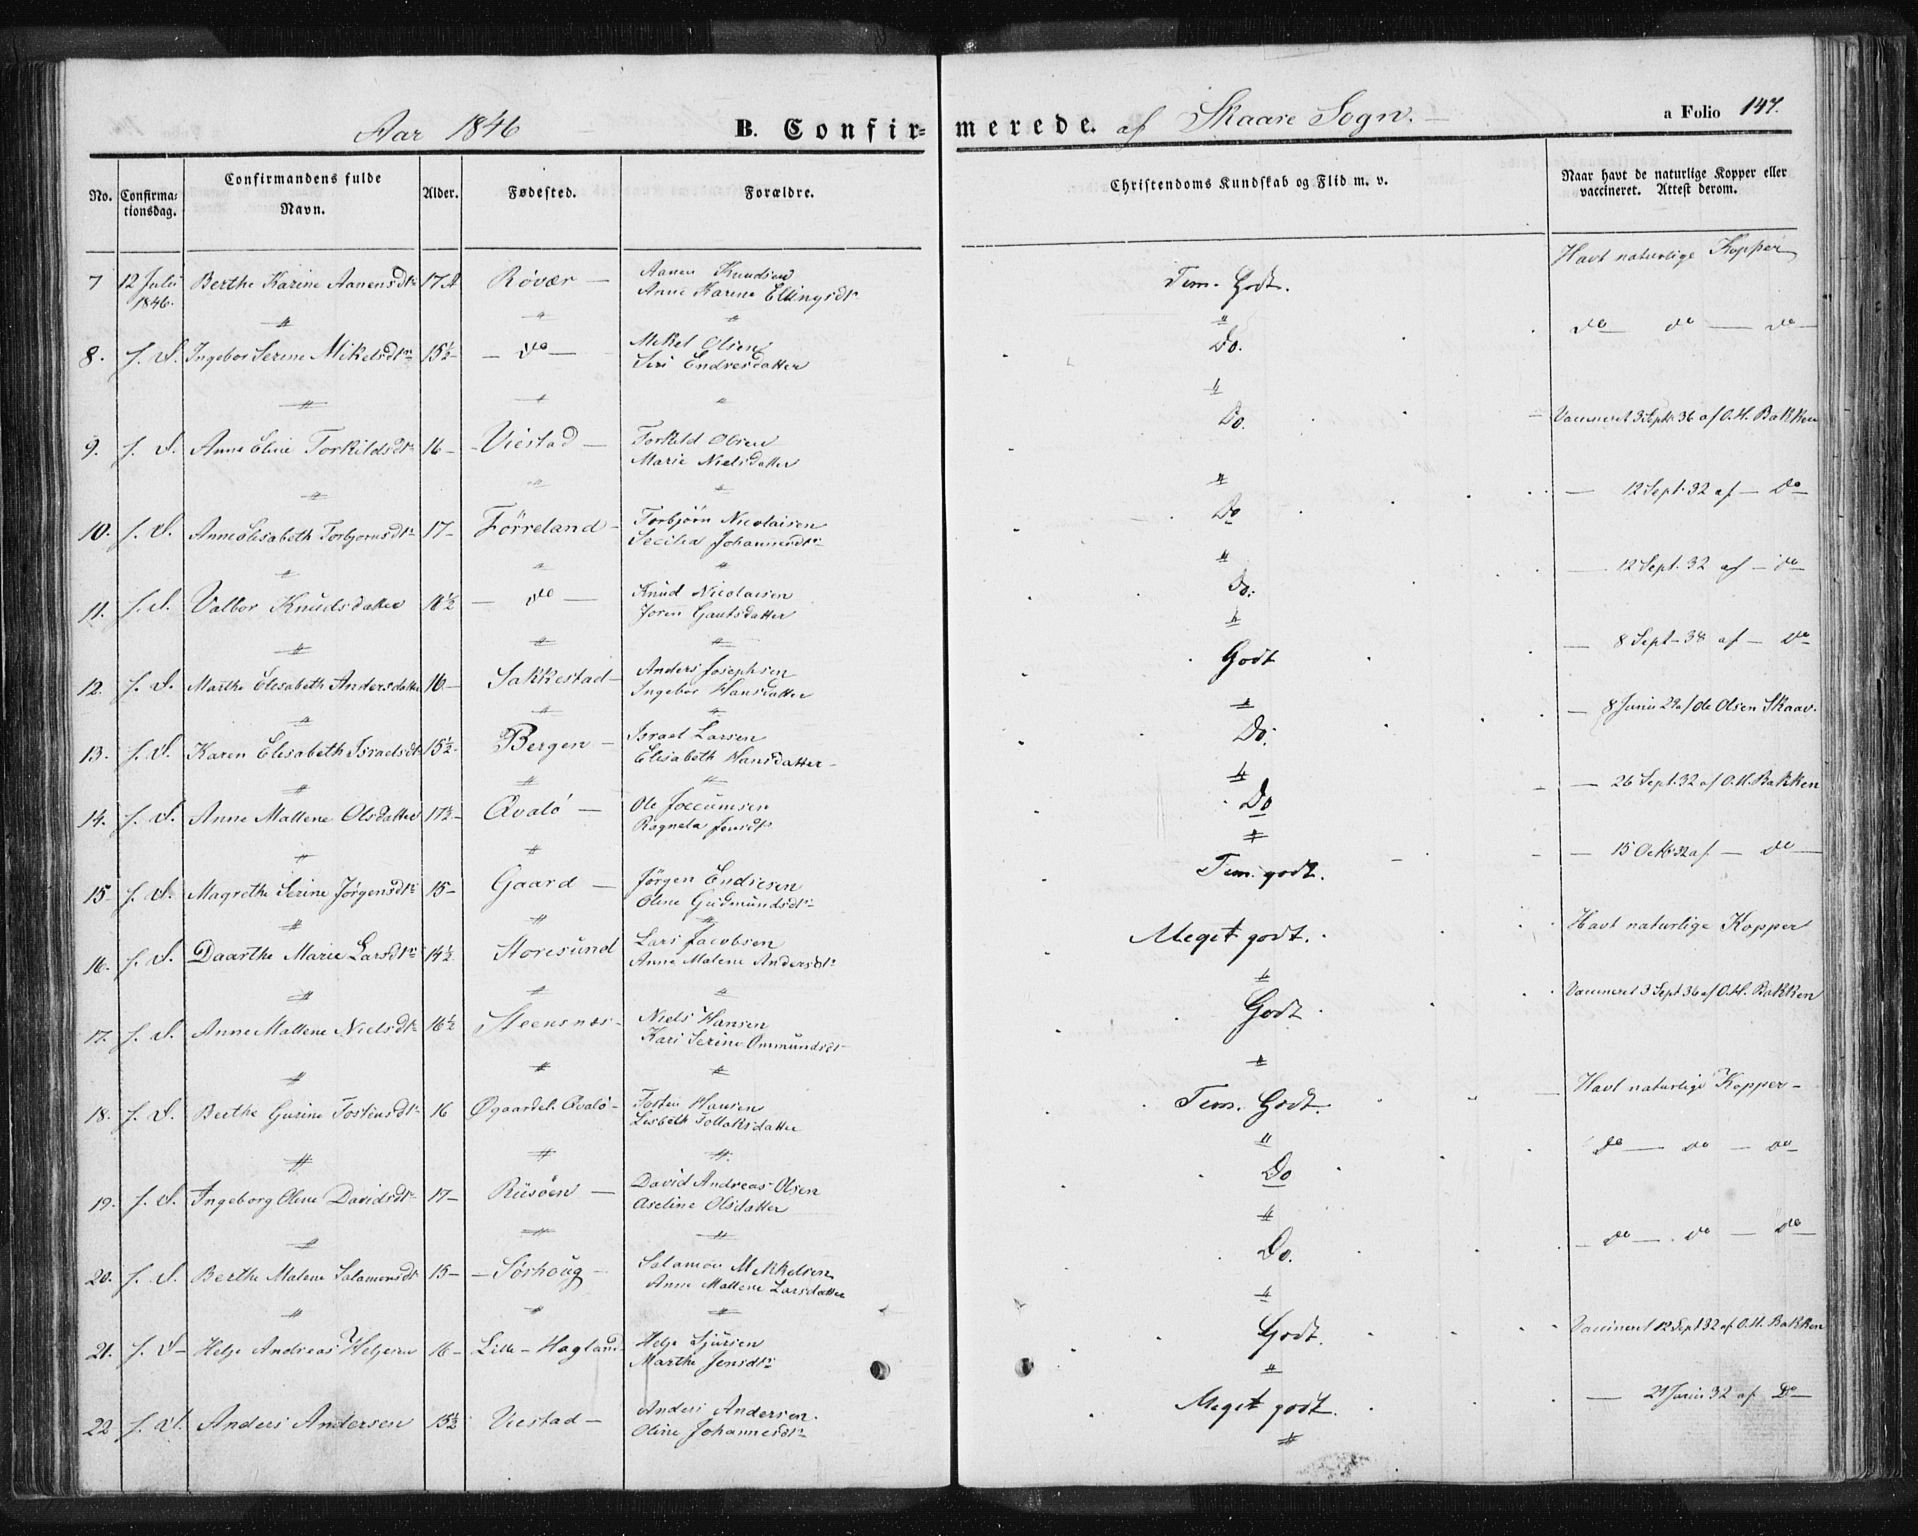 Aar 1846 B. Confir= merede. af Skaare Sogn. a Folio 147.
No. Confirma- tionsdag. Confirmandens fulde Navn. Alder. Fødested. Forældre. Christendoms Kundskab og Flid m. v. Naar havt de naturlige Kopper eller vaccineret. Attest derom.
7 12 Julii 1846. Berthe Karine Aanensdtr 17 A Røvær — Aanen Knudsen Tem. Godt. Havt naturlige Kopper
Anne Karine Ellingsdtr
8. f. S. Ingebor Serine Mikelsdtr 15½ — do — Mikel Olsen Do. do — do — do —
Siri Endresdatter
9. f. S. Anne Eline Torkildsdtr 16 — Viestad — Torkild Olsen Do. Vaccineret 3 Sept 36 af O.H. Bakken
Marie Nielsdatter
10. f. S. Anne Elisabeth Torbjornsdtr 17 — Förreland — Torbjörn Nicolaisen Do — 12 Sept. 32 af — Do —
Secilia Johannesdtr
11. f. S. Valbor Knudsdatter — do — Knud Nicolaisen Do. — 12 Sept. 32 af — do —
Joren Gautsdatter
12. f. S. Marthe Elisabeth Andersdatter 16 — Sakkestad — Anders Josephsen Godt — 8 Sept. 38 af — do —
Ingebor Hansdatter
13. f. S. Karen Elisabeth Israelsdtr 15½ Bergen — Israel Larsen Do. — 8 Junii Ole Olsen Skaav.
Elisabeth Hansdatter —
14. f. S. Anne Mallene Olsdatter 17½ — Qvalö — Ole Joccumsen Do — 26 Sept. 32 af O.H. Bakken
Ragnela Jensdtr
15 f. S. Magrethe Serine Jörgensdtr 15 — Gaard — Jörgen Endresen Tem. godt. — 15 Octbr 32 af — do —
Oline Gudmundsdtr
16. f. S. Daarthe Marie Larsdtr 14½ Storesund Lars Jacobsen Meget godt. Havt naturlige Kopper
Anne Malene Andersdtr
17. f. S. Anne Mallene Nielsdtr 16½ Steensnæs — Niels Hansen Godt Vaccineret 3 Sept 36 af O.H. Bakken
Kari Serine Ommundsdtr
18. f. S. Berthe Gurine Tostensdtr 16 Øgaardel. Qvalö — Tosten Hansen Tem. Godt. Havt naturlige Kopper —
Lisbeth Tollaksdatter
19. f. S. Ingeborg Oline Davidsdtr 17 — Risöen — David Andreas Olsen Do do — do — do
Aseline Olsdatter
20. f. S. Berthe Malene Salamonsdtr 15 — Sörhoug — Salamon Mikkelsen Do. do — do — do
Anne Mallene Larsdatter
21. f. S — Helje Andreas Heljesen 16 — Lille — Hagland Helje Sjursen Godt. Vaccineret 12 Sept 32 af O.H. Bakken
Marthe Jensdtr
22 f. S. Anders Andersen 15½ Viestad — Anders Andersen. Meget godt. — 21 Junii 32 af Do —
Oline Johannesdtr